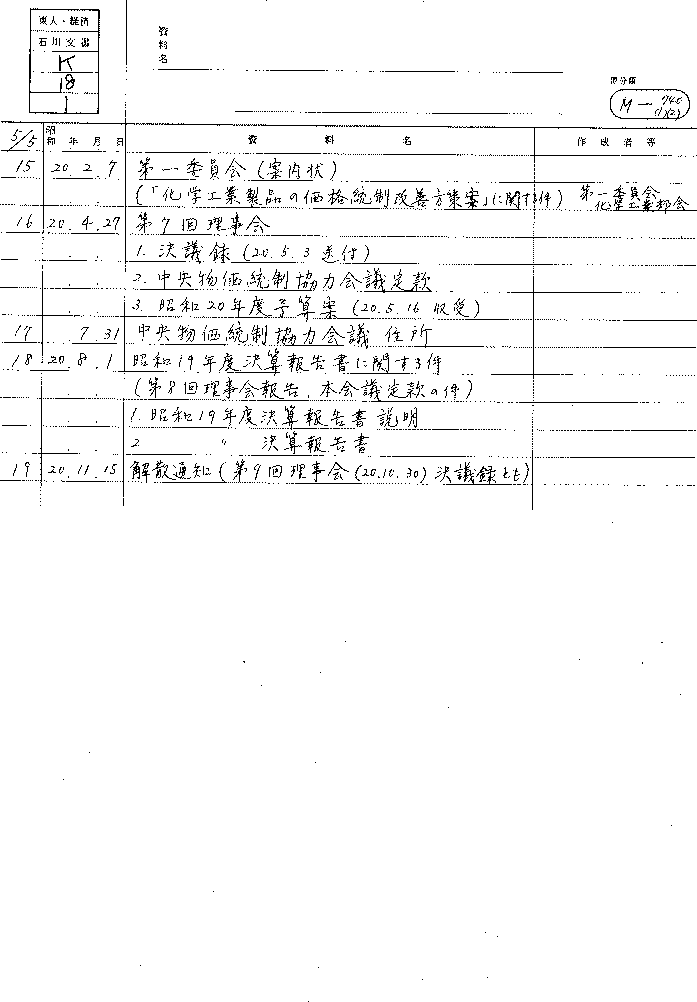 東大・経済
石川文書
K
18
1
資料名
原分類
M-740
(1)(2)
5/5 昭和 年 月 日 資 料 名 作成者等
15 20.2.7 第一委員会（案内状）
（「化学工業製品の価格統制改善方策案」に関する件） 第一委員会
化学工業部会
16 20.4.27 第7回理事会
1. 決議録（20.5.3 送付）
2. 中央物価統制協力会議定款
3. 昭和20年度予算案（20.5.16 収受）
17 7 31 中央物価統制協力会議 住所
18 20.8.1 昭和19年度決算報告書に関する件
（第8回理事会報告、本会議定款の件）
1. 昭和19年度決算報告書説明
2 〃 決算報告書
19 20.11.15 解散通知（第9回理事会（20.10.30）決議録とも）